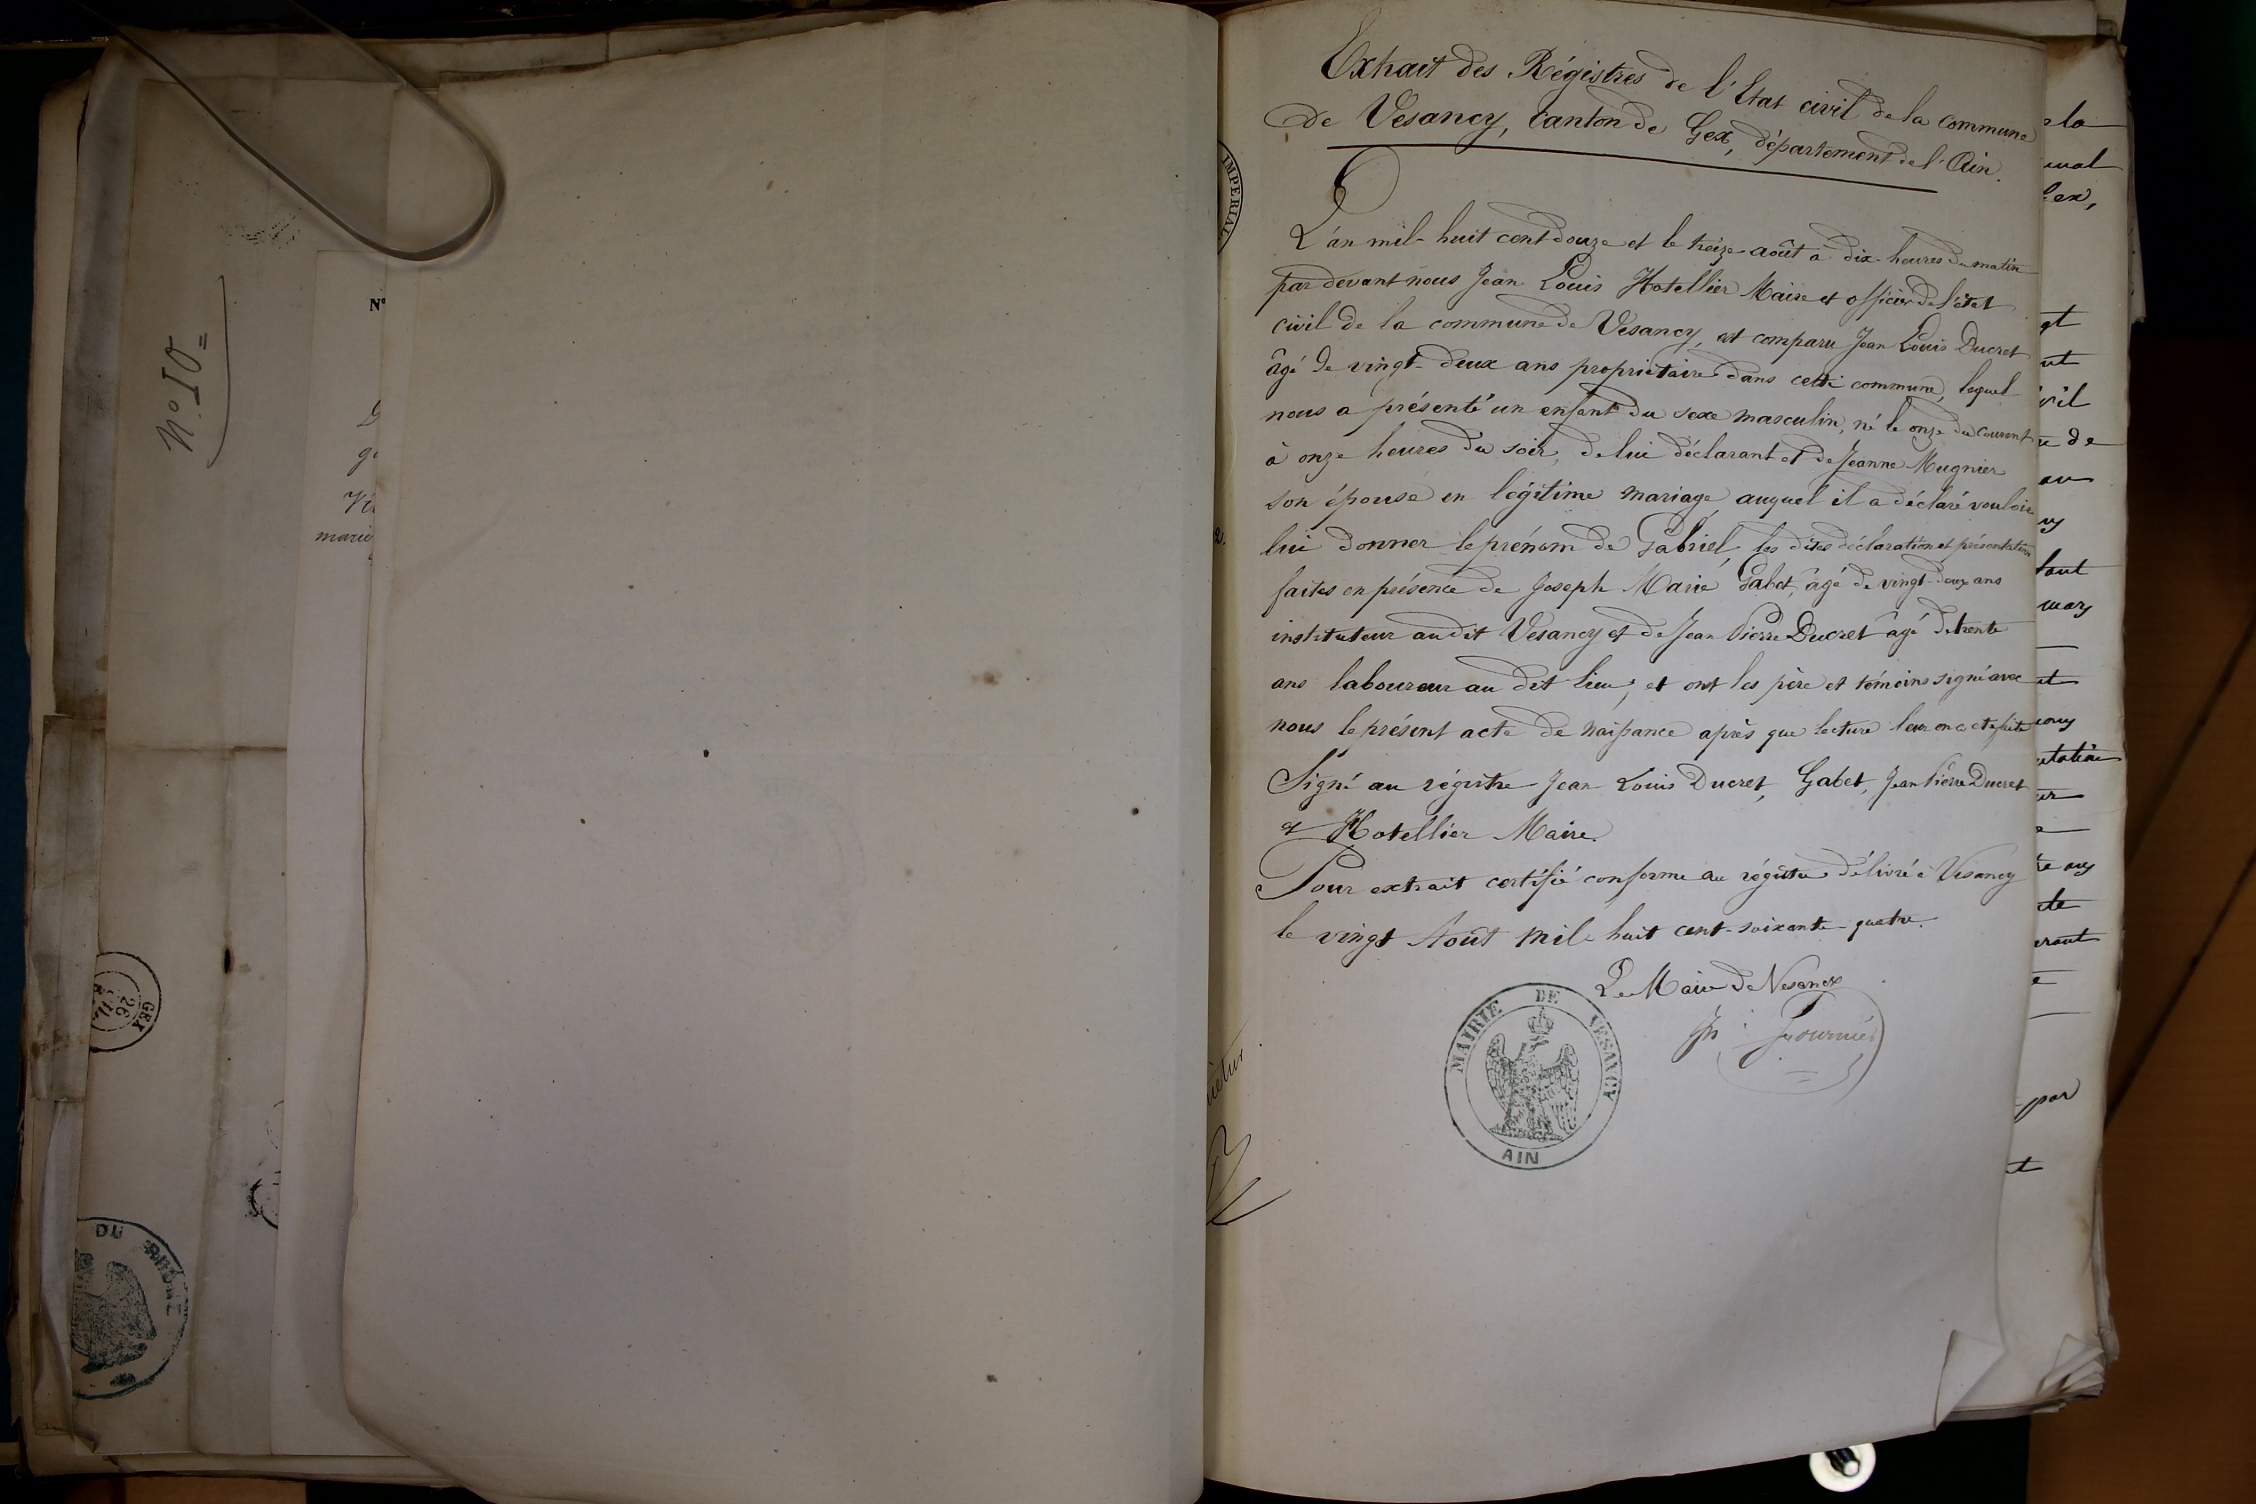 N°. 10 =
N°
marie
GEX
26
DU RHÔNE
IMPERIAL
Extrait des Régistres de l'Etat civil de la commune
de Vesancy, canton de Gex, département de l'Ain.
L'án mil-huit cent douze et le treize août à dix-heures du matin
par devant nous Jean Louis Hotellier Maire et officier de l'état
civil de la commune de Vesancy, est comparu Jean Louis Ducret
âgé de vingt-deux ans propriétaire dans cette commune, lequel
nous a présenté un enfant du sexe masculin, né le onze du courant
à onze heures du soir, de lui déclarant et de Jeanne Mugnier
son épouse en légitime mariage, auquel il a déclaré vouloir
lui donner le prénom de Gabriel, les dites déclaration et présentation
faites en présence de Joseph Marie Gabet, âgé de vingt-deux ans
instituteur audit Vesancy et de Jean Pierre Ducret âgé de trente
ans laboureur au dit lieu; et ont les père et témoins signé avec
nous le présent acte de naissance après que lecture leur en a été faite
Signé au régistre Jean Louis Ducret, Gabet, Jean Pierre Ducret
et Hotellier Maire.
Pour extrait certifié conforme au régistre délivré à Vesancy
le vingt Août mil huit cent-soixante-quatre.
Le Maire de Vesancy
Fournier
MAIRIE DE VESANCY
AIN
par